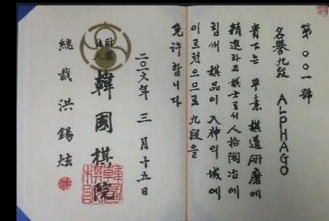 第〇〇一號
名譽九段 ALPHAGO
貴下는 平素 棋道 研磨에
精進하고 棋士로서 人格陶冶에
힘써 棋品이 入神의 域에
이르렀으므로 九段을
免許합니다
二〇一六年 三月 十五日
韓國棋院
總裁 洪錫炫